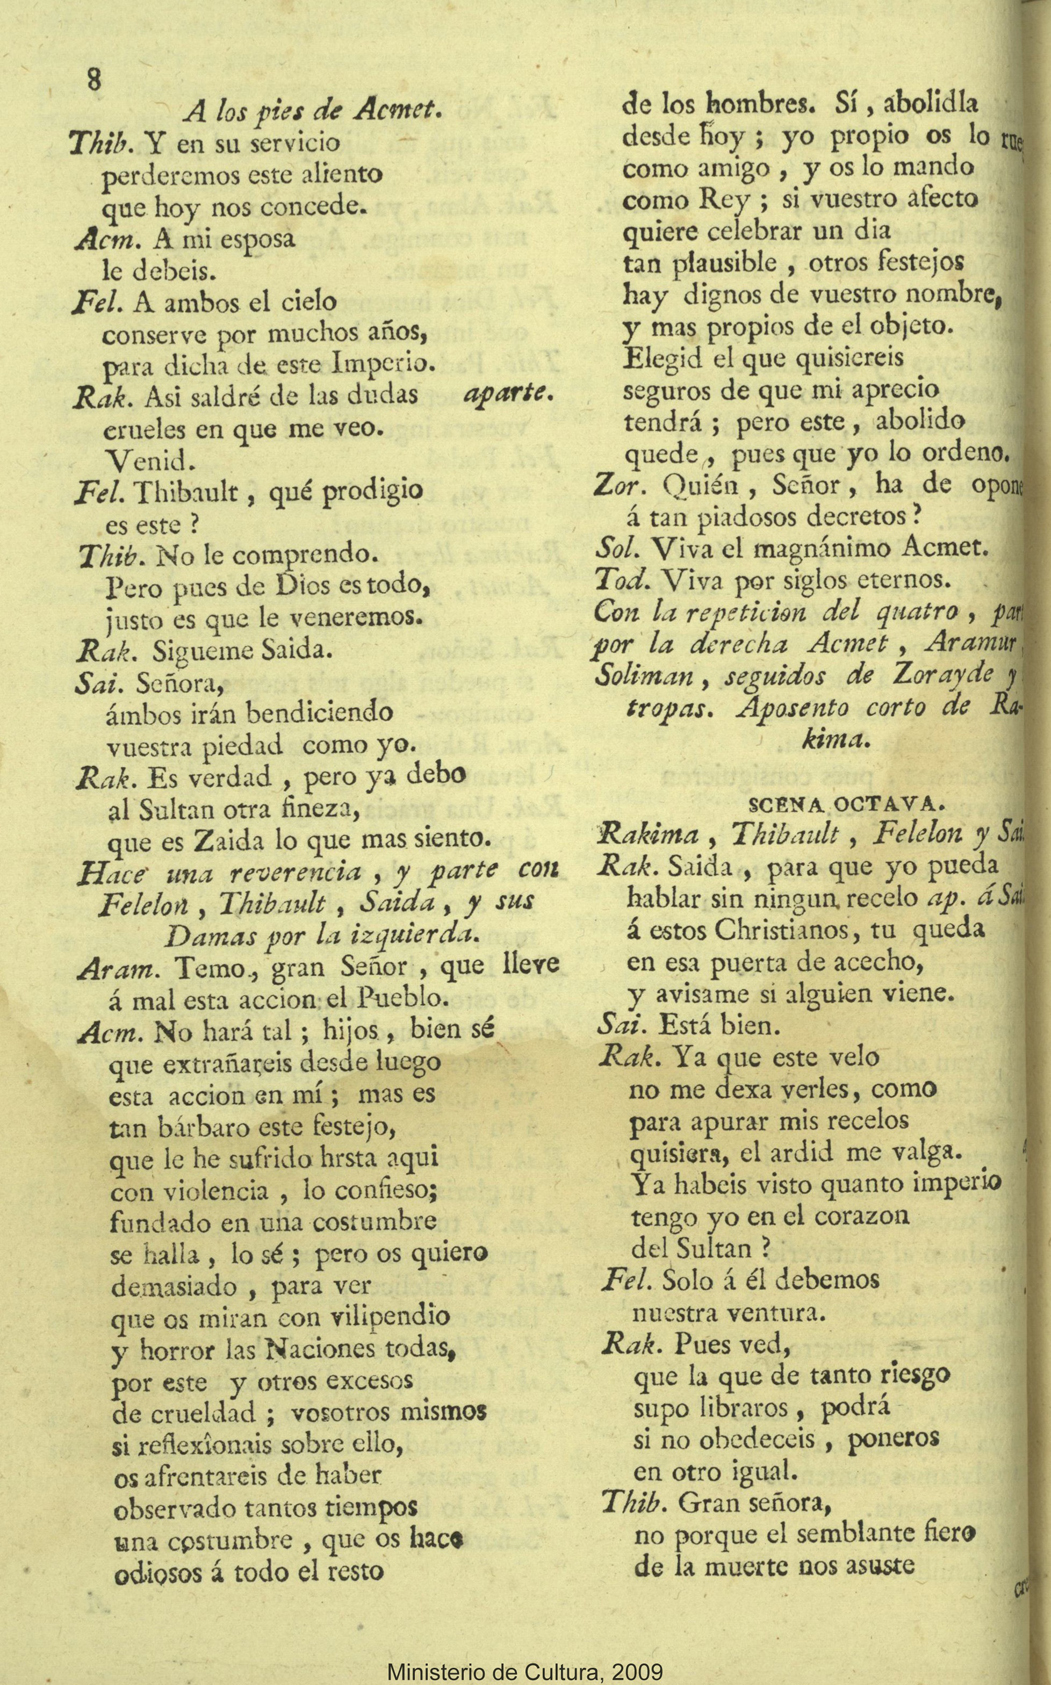 8
A los pies de Acmet.
Thib. Y en su servicio
perderemos este aliento
que hoy nos concede.
Acm. A mi esposa
le debeis.
Fel. A ambos el cielo
conserve por muchos años,
para dicha de este Imperio.
Rak. Asi saldré de las dudas aparte.
crueles en que me veo.
Venid.
Fel. Thibault, qué prodigio
es este?
Thib. No le comprendo.
Pero pues de Dios es todo,
justo es que le veneremos.
Rak. Sigueme Saida.
Sai. Señora,
ámbos irán bendiciendo
vuestra piedad como yo.
Rak. Es verdad, pero ya debo
al Sultan otra fineza,
que es Zaida lo que mas siento.
Hace una reverencia, y parte con
Felelon, Thibault, Saida, y sus
Damas por la izquierda.
Aram. Temo, gran Señor, que lleve
á mal esta accion el Pueblo.
Acm. No hará tal; hijos, bien sé
que extrañareis desde luego
esta accion en mí; mas es
tan bárbaro este festejo,
que le he sufrido hrsta aqui
con violencia, lo confieso;
fundado en una costumbre
se halla, lo sé; pero os quiero
demasiado, para ver
que os miran con vilipendio
y horror las Naciones todas,
por este y otros excesos
de crueldad; vosotros mismos
si reflexîonais sobre ello,
os afrentareis de haber
observado tantos tiempos
una costumbre, que os hace
odiosos á todo el resto
de los hombres. Sí, abolidla
desde hoy; yo propio os lo rue
como amigo, y os lo mando
como Rey; si vuestro afecto
quiere celebrar un dia
tan plausible, otros festejos
hay dignos de vuestro nombre,
y mas propios de el objeto.
Elegid el que quisiereis
seguros de que mi aprecio
tendrá; pero este, abolido
quede, pues que yo lo ordeno.
Zor. Quién, Señor, ha de opone
á tan piadosos decretos?
Sol. Viva el magnánimo Acmet.
Tod. Viva por siglos eternos.
Con la repeticion del quatro, par
por la derecha Acmet, Aramur
Soliman, seguidos de Zorayde y
tropas. Aposento corto de Ra-
kima.
SCENA OCTAVA.
Rakima, Thibault, Felelon y Sai
Rak. Saida, para que yo pueda
hablar sin ningun recelo ap. á Sai
á estos Christianos, tu queda
en esa puerta de acecho,
y avisame si alguien viene.
Sai. Está bien.
Rak. Ya que este velo
no me dexa verles, como
para apurar mis recelos
quisiera, el ardid me valga.
Ya habeis visto quanto imperio
tengo yo en el corazon
del Sultan?
Fel. Solo á él debemos
nuestra ventura.
Rak. Pues ved,
que la que de tanto riesgo
supo libraros, podrá
si no obedeceis, poneros
en otro igual.
Thib. Gran señora,
no porque el semblante fiero
de la muerte nos asuste
Ministerio de Cultura, 2009